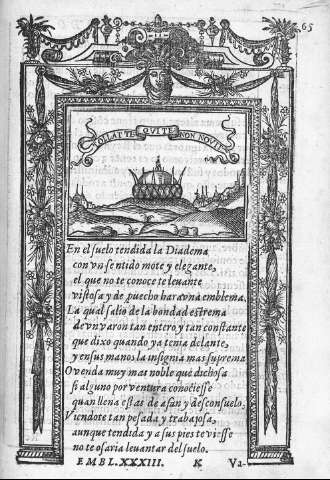 65
TOLLAT TE QVI TE NON NOVIT
En el suelo tendida la Diadema
con vn sentido mote y elegante,
el que no te conoce te leuante
vistosa y de puecho hara vna emblema.
La qual salio de la bondad estrema
de vn varon tan entero y tan constante
que dixo quando ya tenia delante,
y en sus manos la insignia mas suprema
O venda muy mas noble que dichosa
si alguno por ventura conociesse
quan llena estas de afan y desconsuelo.
Viendote tan pesada y trabajosa,
aunque tendida y a sus pies te viesse
no te osaria leuantar del suelo.
EMBL. XXXIII. K Va-